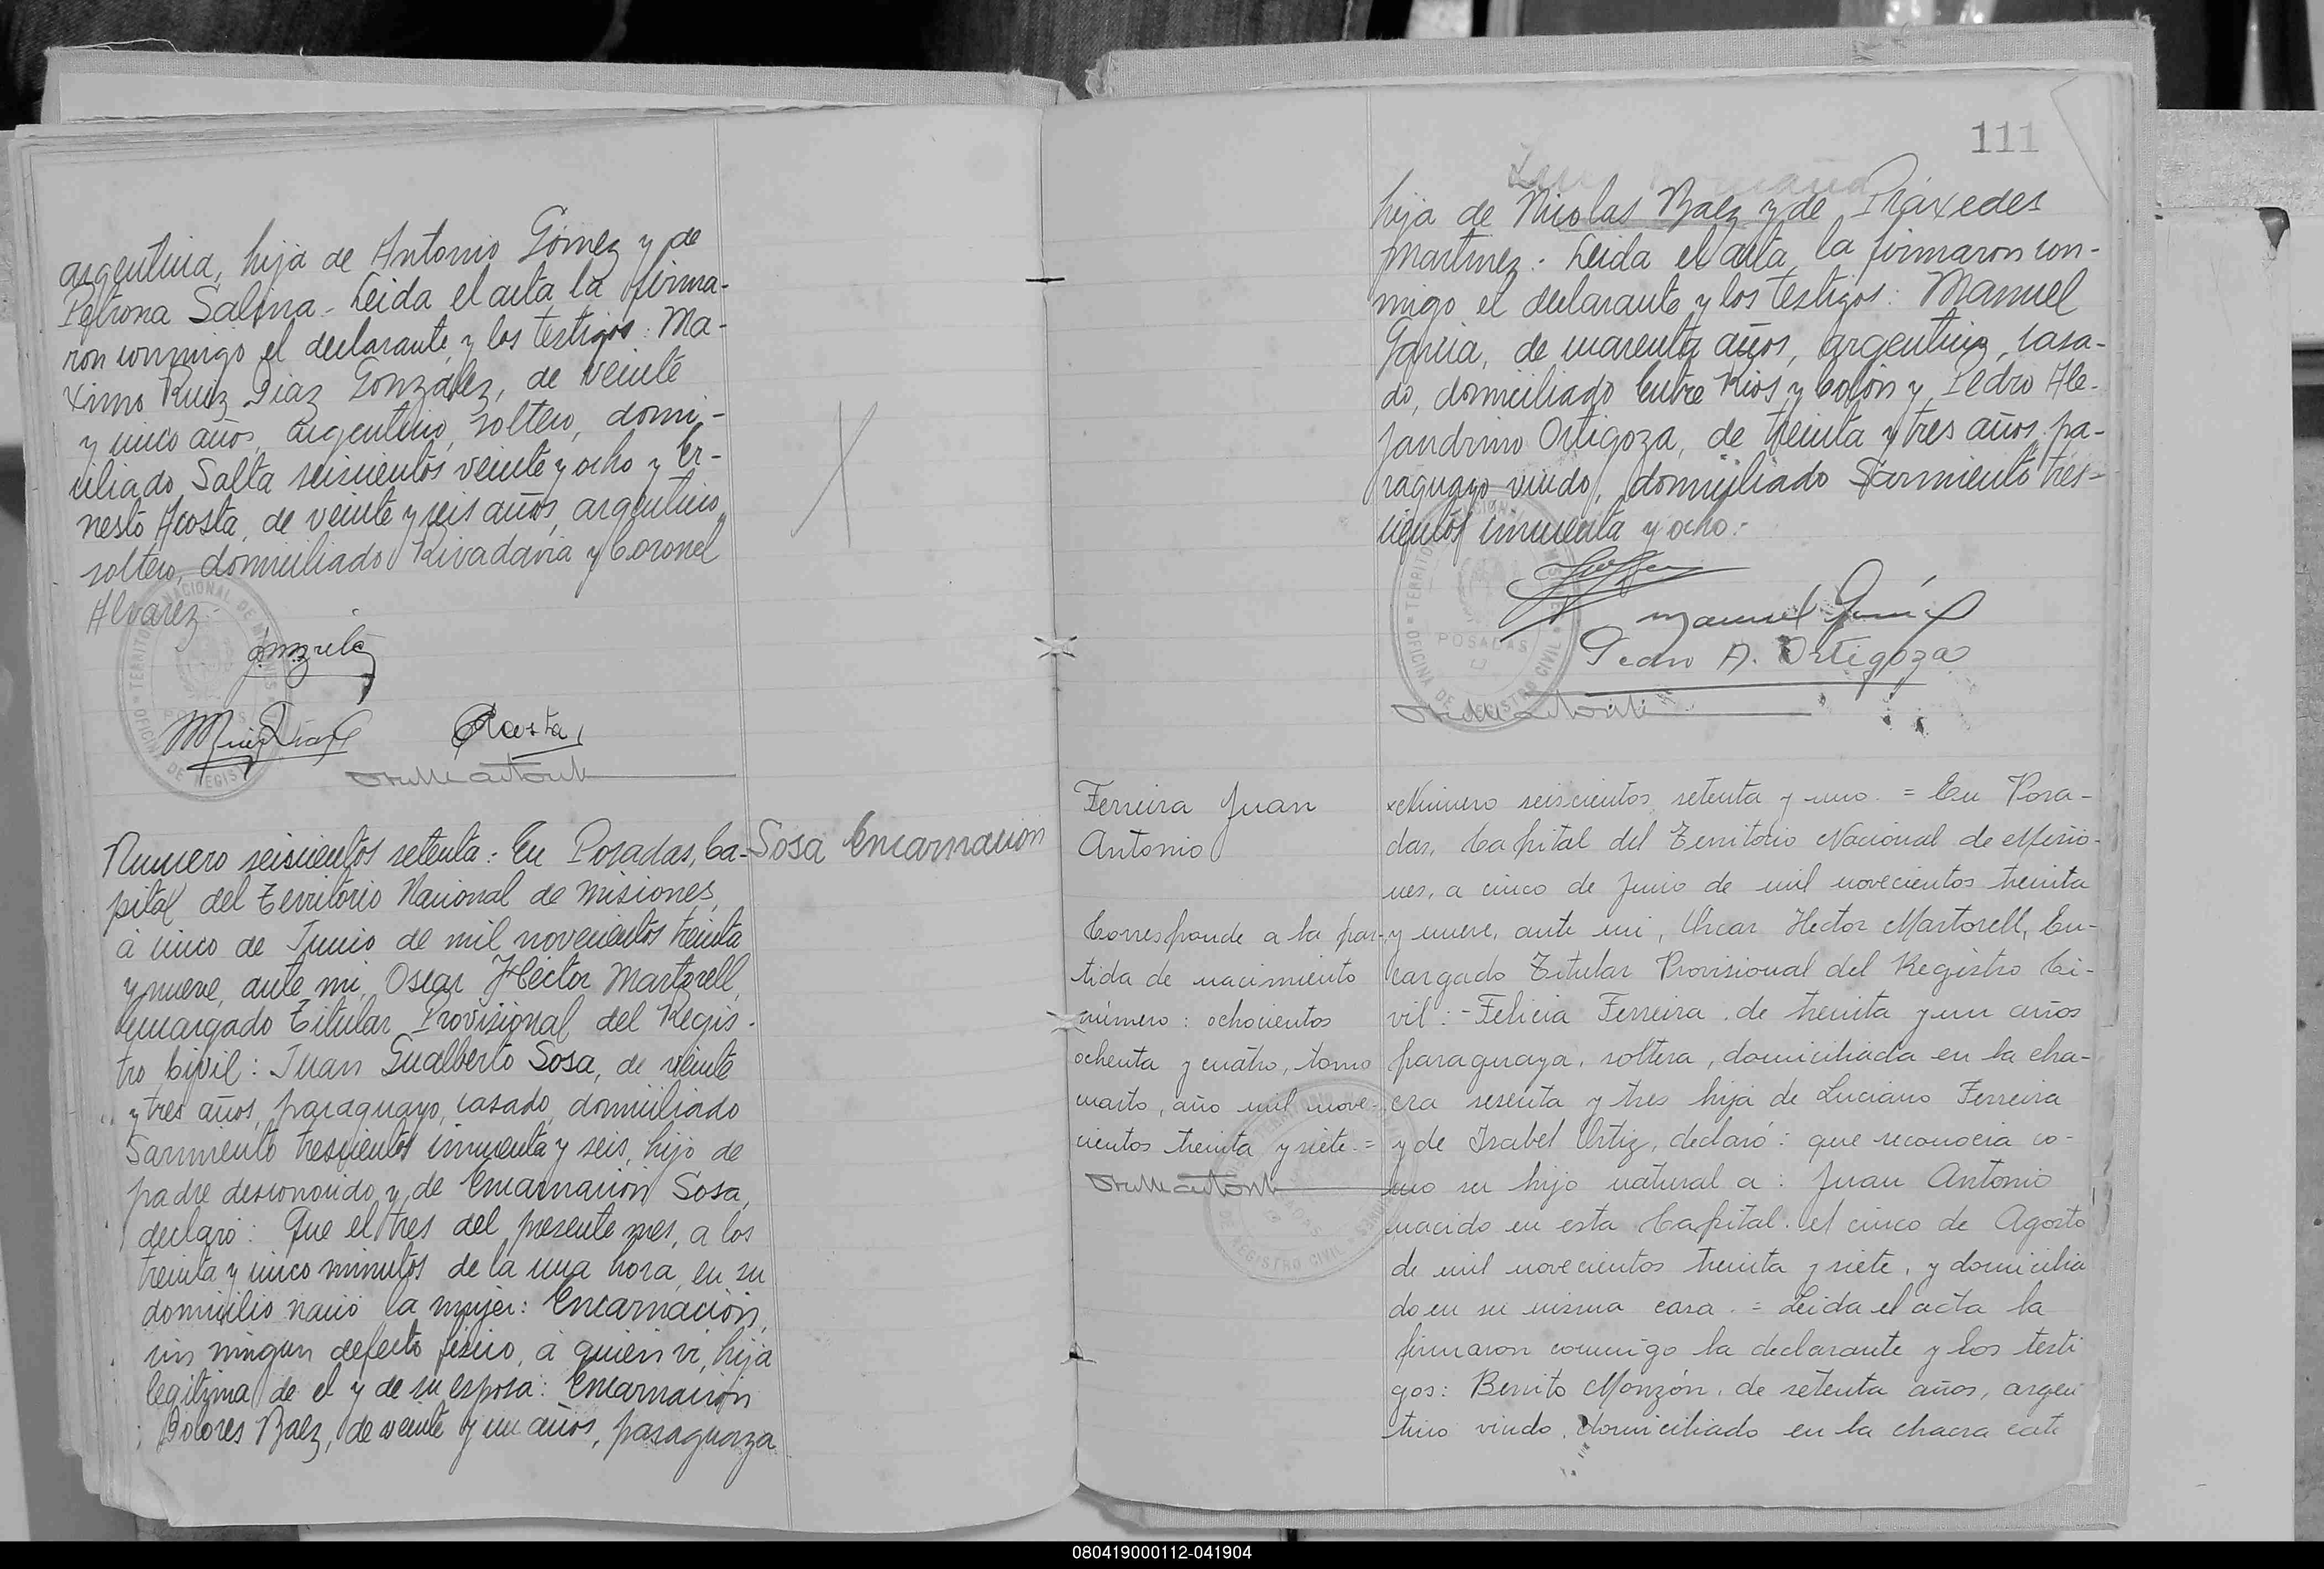 argentina, hija de Antonio Gómez y de
Petrona Salina.- Leida el acta la firma-
ron conmigo el declarante y los testigos: Ma-
ximo Ruiz Diaz González, de veinte
y cinco años, argentino, soltero, domi-
ciliado Salta seiscientos veinte y ocho y Er-
nesto Acosta, de veinte y seis años, argentino,
soltero, domiciliado Rivadavia y Coronel
Alvarez.-
TERRITORIO NACIONAL DE MISIONES
POSADAS
OFICINA DE REGISTRO CIVIL
MRuizDiazG
EAcosta
Sosa Encarnación
Numero seiscientos setenta: En Posadas, Ca-
pital del Territorio Nacional de Misiones,
á cinco de Junio de mil novecientos treinta
y nueve, ante mi, Oscar Héctor Martorell,
Encargado Titular Provisional del Regis-
tro Civil: Juan Gualberto Sosa, de veinte
y tres años, paraguayo, casado, domiciliado
Sarmiento trescientos cincuenta y seis, hijo de
padre desconocido y de Encarnación Sosa,
declaró: Que el tres del presente mes, a los
treinta y cinco minutos de la una hora, en su
domicilio nació la mujer: Encarnación,
sin ningun defecto fisico, á quien vi, hija
legitima de el y de su esposa: Encarnación
Dolores Baez, de veinte y un años, paraguaya
111
hija de Nicolas Baez y de Práxedes
Martinez.- Leida el acta, la firmaron con-
migo el declarante y los testigos: Manuel
Garcia, de cuarenta años, argentino, casa-
do, domiciliado Entre Rios y Colón y Pedro Ale-
jandrino Ortigoza, de treinta y tres años, pa-
raguayo viudo, domiciliado Sarmiento tres-
cientos cincuenta y ocho.-
Manuel García
Pedro A. Ortigoza
TERRITORIO NACIONAL DE MISIONES
POSADAS
OFICINA DE REGISTRO CIVIL
Ferreira Juan
Antonio
Corresponde a la par-
tida de nacimiento
número: ochocientos
ochenta y cuatro, tomo
cuarto, año mil nove-
cientos treinta y siete.=
REGISTRO CIVIL
xNúmero seiscientos setenta y uno. = En Posa-
das, Capital del Territorio Nacional de Misio-
nes, a cinco de Junio de mil novecientos treinta
y nueve, ante mi, Oscar Hector Martorell, En-
cargado Titular Provisional del Registro Ci-
vil:- Felicia Ferreira, de treinta y un años
paraguaya, soltera, domiciliada en la cha-
cra sesenta y tres hija de Luciano Ferreira
y de Isabel Ortiz, declaró: que reconocia co-
mo su hijo natural a: Juan Antonio
nacido en esta Capital, el cinco de Agosto
de mil novecientos treinta y siete, y domicilia
do en su misma casa. = Leida el acta la
firmaron conmigo la declarante y los testi
gos: Benito Monzón, de setenta años, argen
tino viudo, domiciliado en la chacra cato
080419000112-041904